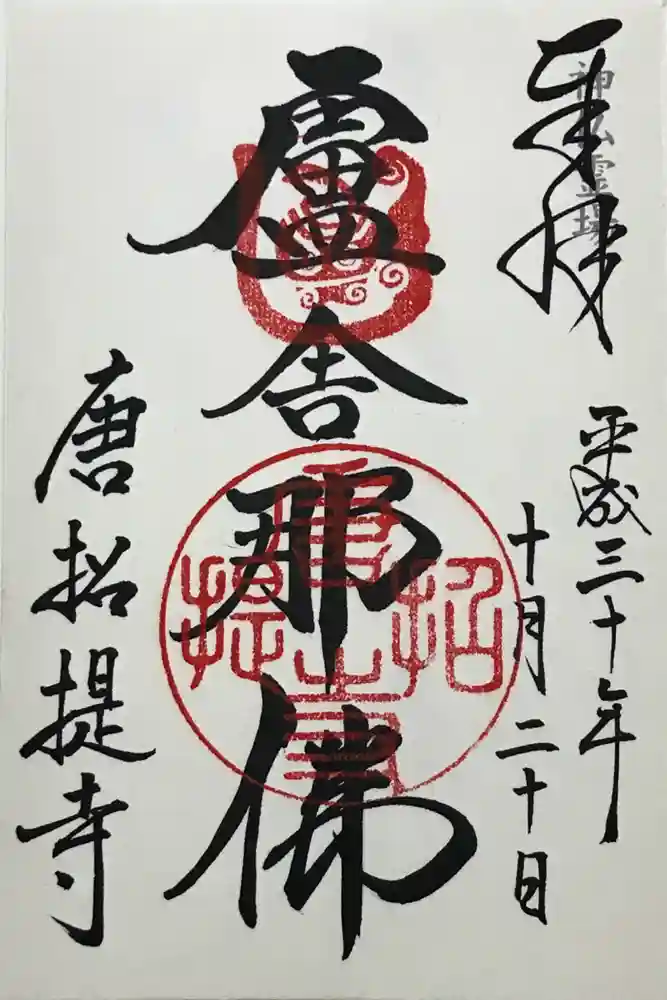 奉拝
神仏霊場
平成三十年
十月二十日
盧舎那佛
唐招提寺
唐招提寺